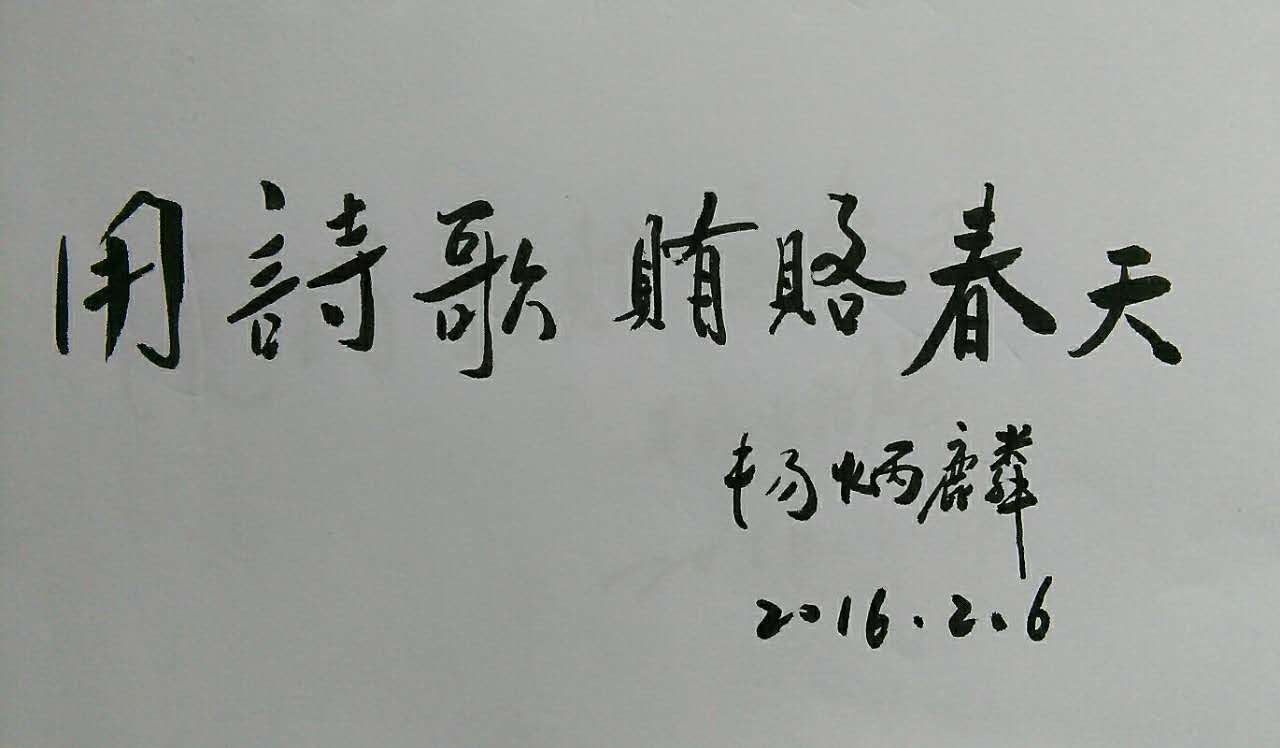 用詩歌賄賂春天
杨炳麟
2016.2.6